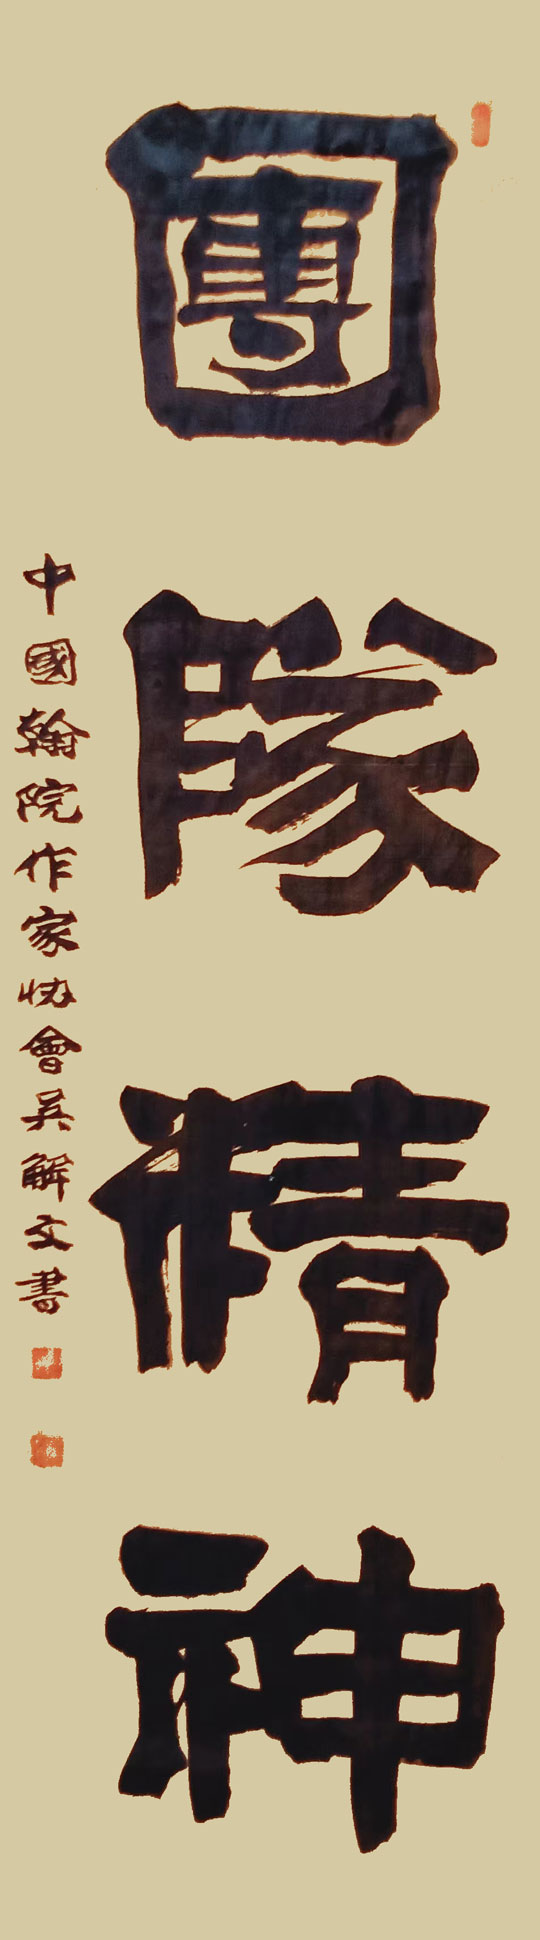 團隊精神
中國翰院作家协會吴解文書